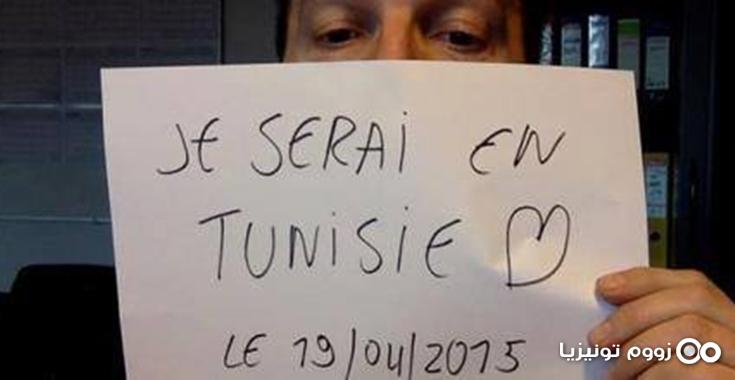 JE SERAi EN
TUNiSiE ♡
LE 19/04/2015
زووم تونيزيا